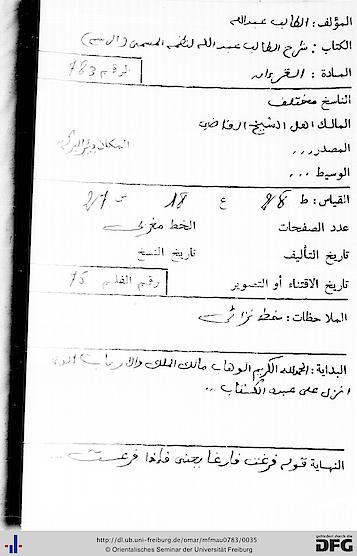 المؤلف : الطالب عبدالله
الكتاب : شرح الطالب عبد الله لنظمه المسمى
المادة : الرقم 783
الناسخ مختلف
المالك اهل الشيخ القاضي
المصدر...
الوسيط ...
القياس: ط ع س
عدد الصفحات الخط مغربي
تاريخ التأليف تاريخ النسخ
تاريخ الاقتناء أو التصوير رقم الفلم 75
الملاحظات :
البداية : الحمد لله الكريم الوهاب مالك الملك
انزل على عبده الكتاب ...
النهاية قوله فرغت فارغا يجنى فإذا فرغت ...
http://dl.ub.uni-freiburg.de/omar/mfmau0783/0035
© Orientalisches Seminar der Universität Freiburg
gefördert durch die
DFG